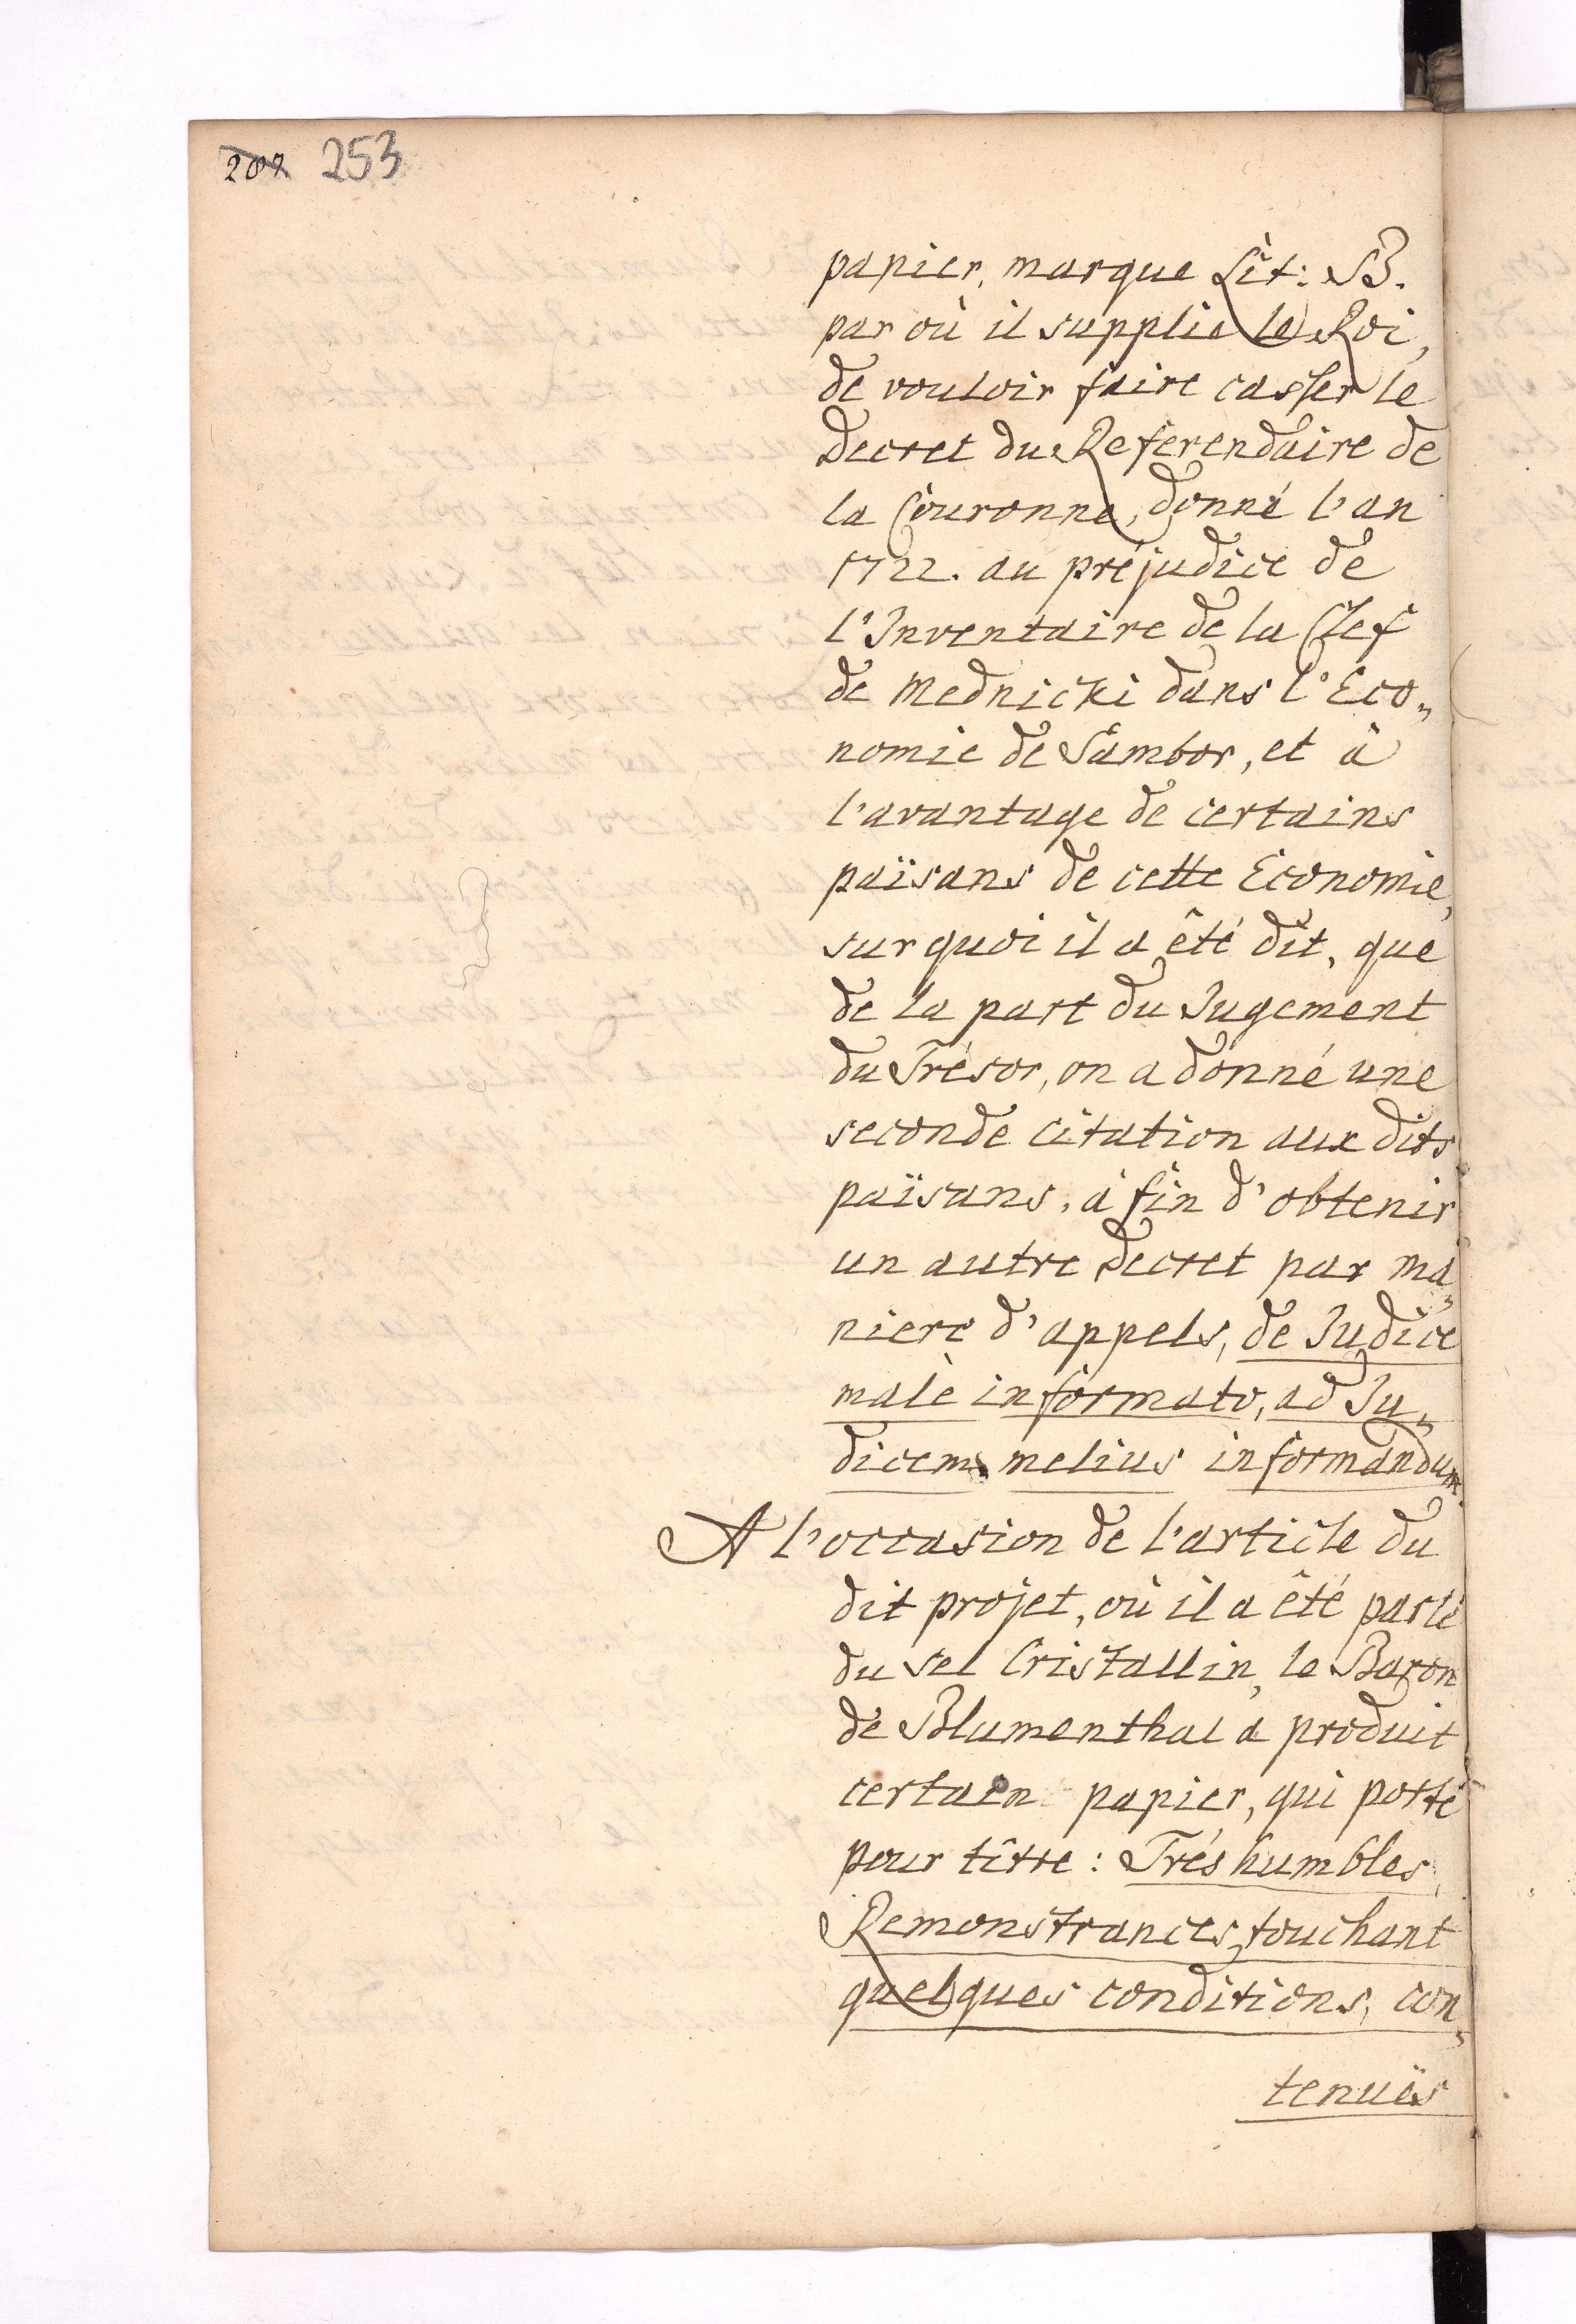 207 253
papier, marque Lit: B.
par où il supplie le Roi,
de vouloir faire casser le
Decret du Referendaire de
la Couronne, donné l'an
1722. au préjudice de
l'Inventaire de la Clef
de Mednicki dans l'Eco„
nomie de Sambor, et à
l'avantage de certains
païsans de cette Economie,
sur quoi il a êté dit, que
de la part du Jugement
du Trésor, on a donné une
seconde citation aux dits
païsans, à fin d'obtenir
un autre Decret par ma„
niere d'appels, de Judice
malè informato, ad Ju„
dicem melius informandum.
A l'occasion de l'article du
dit projet, où il a êté parlé
du sel Cristallin, le Baron
de Blumenthal a produit
certain papier, qui porte
pour tître: Trés humbles
Remonstrances, touchant
quelques conditions, con„
tenuës